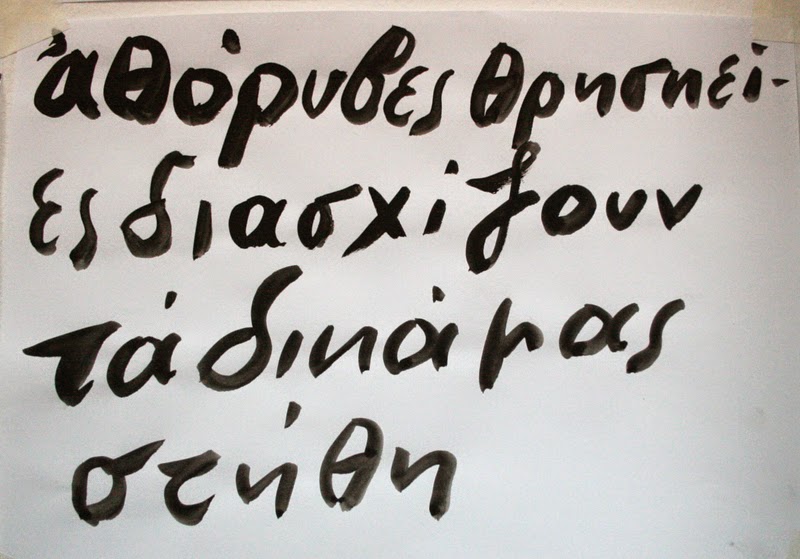 ἀθόρυβες θρησκεί-
ες διασχίζουν
τά δικά μας
στήθη